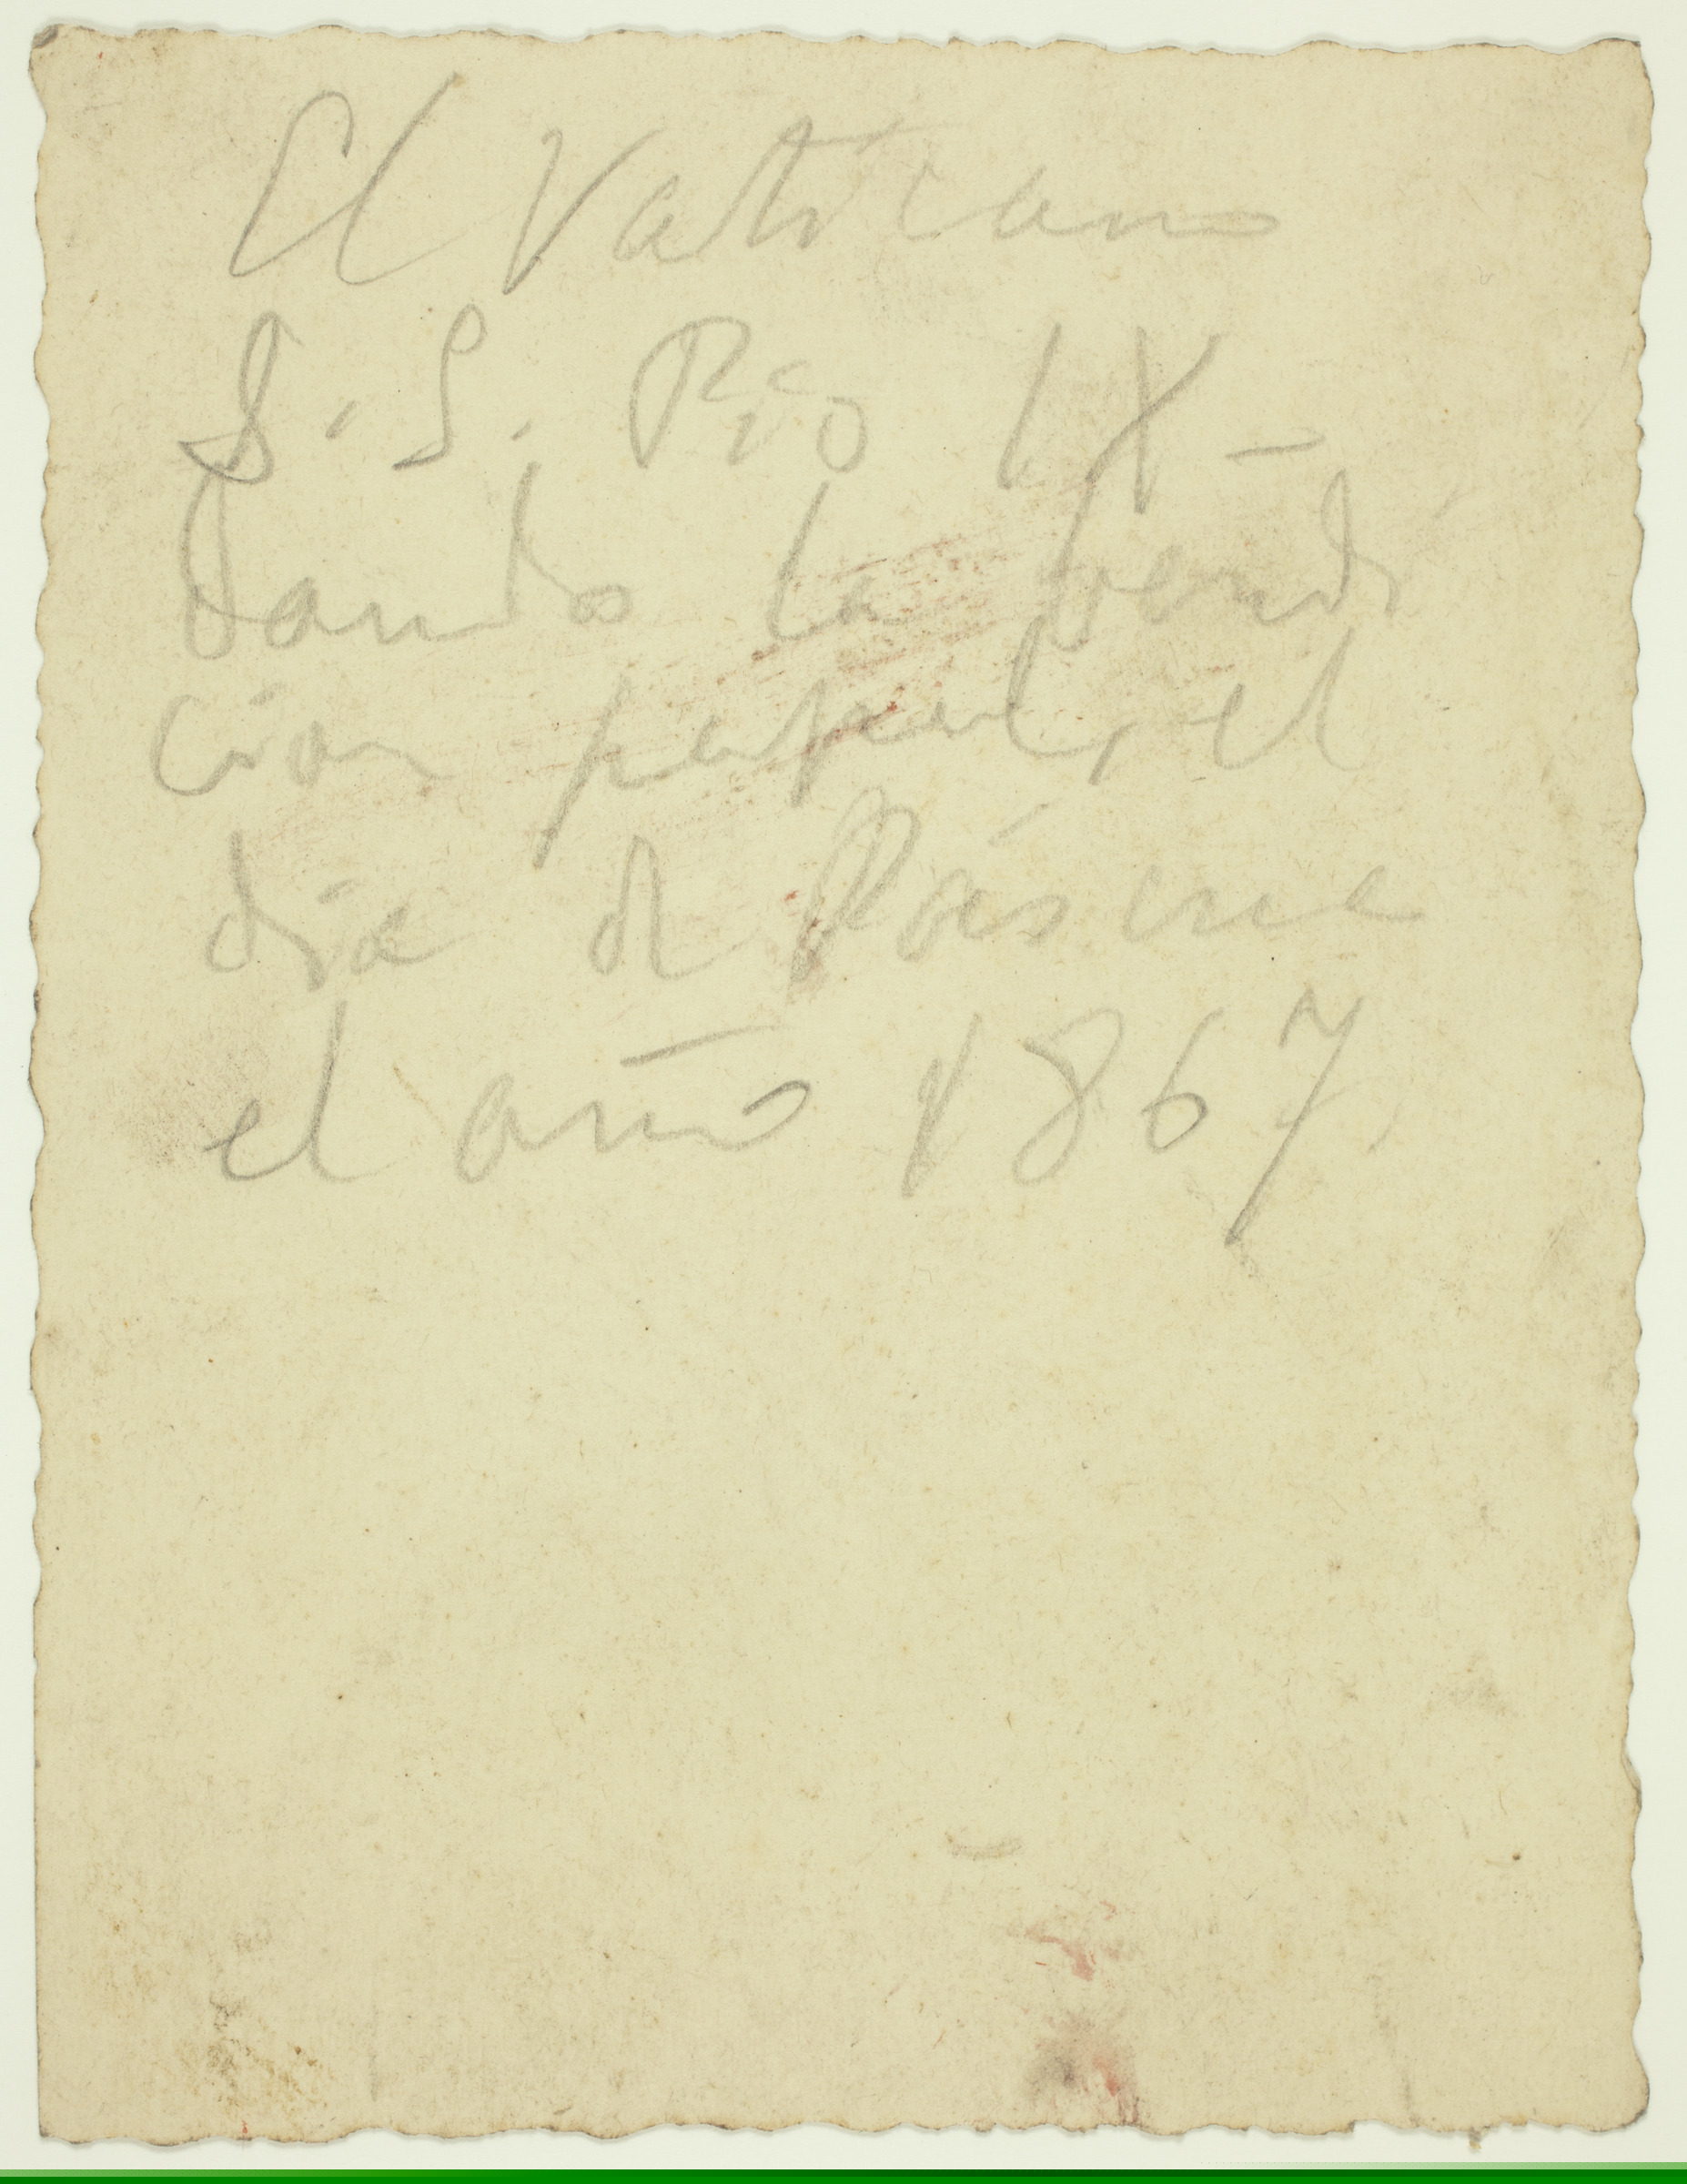 El Vaticano
S. S. Pío IX -
dando la bendi
cion papal, el
día de Páscua
el año 1867